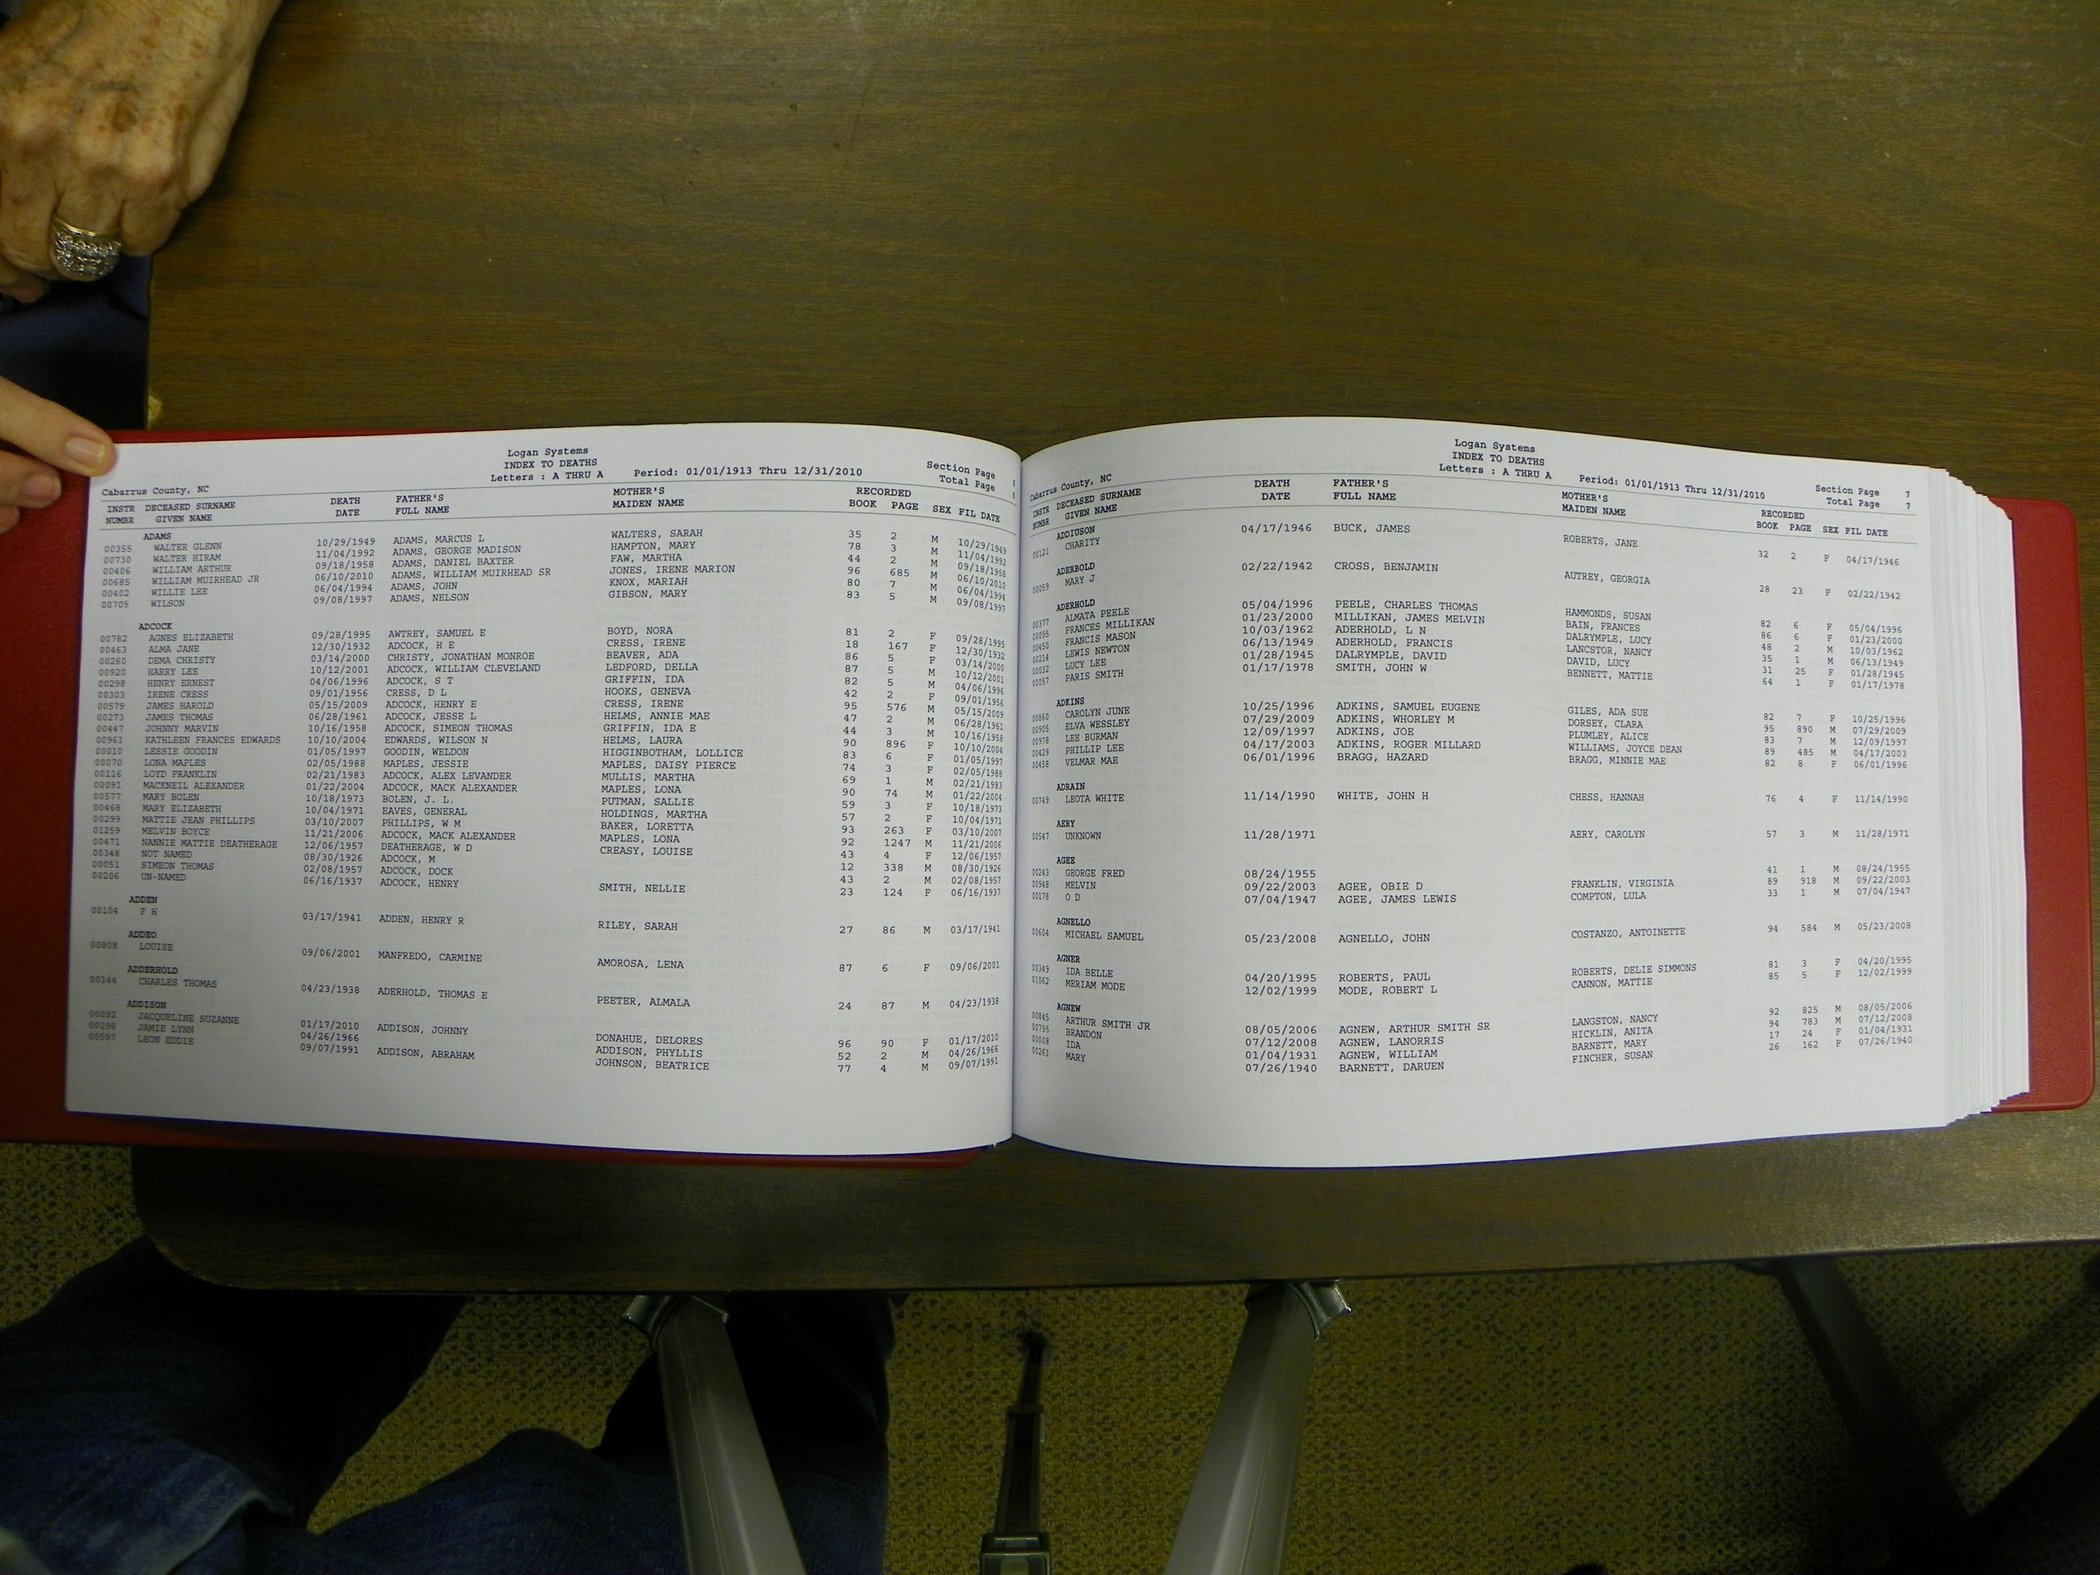 Logan Systems
INDEX TO DEATHS
Letters : A THRU A Period: 01/01/1913 Thru 12/31/2010
Section Page 6
Total Page 6
Cabarrus County, NC
INSTR DECEASED SURNAME DEATH FATHER'S MOTHER'S RECORDED
NUMBR GIVEN NAME DATE FULL NAME MAIDEN NAME BOOK PAGE SEX FIL DATE
ADAMS
00355 WALTER GLENN 10/29/1949 ADAMS, MARCUS L WALTERS, SARAH 35 2 M 10/29/1949
00730 WALTER HIRAM 11/04/1992 ADAMS, GEORGE MADISON HAMPTON, MARY 78 3 M 11/04/1992
00406 WILLIAM ARTHUR 09/18/1958 ADAMS, DANIEL BAXTER FAW, MARTHA 44 2 M 09/18/1958
00685 WILLIAM MUIRHEAD JR 06/10/2010 ADAMS, WILLIAM MUIRHEAD SR JONES, IRENE MARION 96 685 M 06/10/2010
00402 WILLIE LEE 06/04/1994 ADAMS, JOHN KNOX, MARIAH 80 7 M 06/04/1994
00705 WILSON 09/08/1997 ADAMS, NELSON GIBSON, MARY 83 5 M 09/08/1997
ADCOCK
00782 AGNES ELIZABETH 09/28/1995 AWTREY, SAMUEL E BOYD, NORA 81 2 F 09/28/1995
00463 ALMA JANE 12/30/1932 ADCOCK, H E CRESS, IRENE 18 167 F 12/30/1932
00260 DEMA CHRISTY 03/14/2000 CHRISTY, JONATHAN MONROE BEAVER, ADA 86 5 F 03/14/2000
00920 HARRY LEE 10/12/2001 ADCOCK, WILLIAM CLEVELAND LEDFORD, DELLA 87 5 M 10/12/2001
00298 HENRY ERNEST 04/06/1996 ADCOCK, S T GRIFFIN, IDA 82 5 M 04/06/1996
00303 IRENE CRESS 09/01/1956 CRESS, D L HOOKS, GENEVA 42 2 F 09/01/1956
00579 JAMES HAROLD 05/15/2009 ADCOCK, HENRY E CRESS, IRENE 95 576 M 05/15/2009
00273 JAMES THOMAS 06/28/1961 ADCOCK, JESSE L HELMS, ANNIE MAE 47 2 M 06/28/1961
00447 JOHNNY MARVIN 10/16/1958 ADCOCK, SIMEON THOMAS GRIFFIN, IDA E 44 3 M 10/16/1958
00961 KATHLEEN FRANCES EDWARDS 10/10/2004 EDWARDS, WILSON N HELMS, LAURA 90 896 F 10/10/2004
00010 LESSIE GOODIN 01/05/1997 GOODIN, WELDON HIGGINBOTHAM, LOLLICE 83 6 F 01/05/1997
00070 LONA MAPLES 02/05/1988 MAPLES, JESSIE MAPLES, DAISY PIERCE 74 3 F 02/05/1988
00116 LOYD FRANKLIN 02/21/1983 ADCOCK, ALEX LEVANDER MULLIS, MARTHA 69 1 M 02/21/1983
00091 MACKNEIL ALEXANDER 01/22/2004 ADCOCK, MACK ALEXANDER MAPLES, LONA 90 74 M 01/22/2004
00577 MARY BOLEN 10/18/1973 BOLEN, J. L. PUTMAN, SALLIE 59 3 F 10/18/1973
00468 MARY ELIZABETH 10/04/1971 EAVES, GENERAL HOLDINGS, MARTHA 57 2 F 10/04/1971
00299 MATTIE JEAN PHILLIPS 03/10/2007 PHILLIPS, W M BAKER, LORETTA 93 263 F 03/10/2007
01259 MELVIN BOYCE 11/21/2006 ADCOCK, MACK ALEXANDER MAPLES, LONA 92 1247 M 11/21/2006
00471 NANNIE MATTIE DEATHERAGE 12/06/1957 DEATHERAGE, W D CREASY, LOUISE 43 4 F 12/06/1957
00348 NOT NAMED 08/30/1926 ADCOCK, M 12 338 M 08/30/1926
00051 SIMEON THOMAS 02/08/1957 ADCOCK, DOCK 43 2 M 02/08/1957
00206 UN-NAMED 06/16/1937 ADCOCK, HENRY SMITH, NELLIE 23 124 F 06/16/1937
ADDEN
00104 F H 03/17/1941 ADDEN, HENRY R RILEY, SARAH 27 86 M 03/17/1941
ADDEO
00808 LOUISE 09/06/2001 MANFREDO, CARMINE AMOROSA, LENA 87 6 F 09/06/2001
ADDERHOLD
00144 CHARLES THOMAS 04/23/1938 ADERHOLD, THOMAS E PEETER, ALMALA 24 87 M 04/23/1938
ADDISON
00092 JACQUELINE SUZANNE 01/17/2010 ADDISON, JOHNNY DONAHUE, DELORES 96 90 F 01/17/2010
00190 JAMIE LYNN 04/26/1966 ADDISON, PHYLLIS 52 2 M 04/26/1966
00557 LEON EDDIE 09/07/1991 ADDISON, ABRAHAM JOHNSON, BEATRICE 77 4 M 09/07/1991
Logan Systems
INDEX TO DEATHS
Letters : A THRU A Period: 01/01/1913 Thru 12/31/2010
Section Page 7
Total Page 7
Cabarrus County, NC
INSTR DECEASED SURNAME DEATH FATHER'S MOTHER'S RECORDED
NUMBR GIVEN NAME DATE FULL NAME MAIDEN NAME BOOK PAGE SEX FIL DATE
ADDIUSON
00121 CHARITY 04/17/1946 BUCK, JAMES ROBERTS, JANE 32 2 F 04/17/1946
ADERBOLD
00059 MARY J 02/22/1942 CROSS, BENJAMIN AUTREY, GEORGIA 28 23 F 02/22/1942
ADERHOLD
00377 ALMATA PEELE 05/04/1996 PEELE, CHARLES THOMAS HAMMONDS, SUSAN 82 6 F 05/04/1996
00095 FRANCES MILLIKAN 01/23/2000 MILLIKAN, JAMES MELVIN BAIN, FRANCES 86 6 F 01/23/2000
00450 FRANCIS MASON 10/03/1962 ADERHOLD, L N DALRYMPLE, LUCY 48 2 M 10/03/1962
00214 LEWIS NEWTON 06/13/1949 ADERHOLD, FRANCIS LANCSTOR, NANCY 35 1 M 06/13/1949
00032 LUCY LEE 01/28/1945 DALRYMPLE, DAVID DAVID, LUCY 31 25 F 01/28/1945
00057 PARIS SMITH 01/17/1978 SMITH, JOHN W BENNETT, MATTIE 64 1 F 01/17/1978
ADKINS
00860 CAROLYN JUNE 10/25/1996 ADKINS, SAMUEL EUGENE GILES, ADA SUE 82 7 F 10/25/1996
00905 ELVA WESSLEY 07/29/2009 ADKINS, WHORLEY M DORSEY, CLARA 95 890 M 07/29/2009
00978 LEE BURMAN 12/09/1997 ADKINS, JOE PLUMLEY, ALICE 83 7 M 12/09/1997
00429 PHILLIP LEE 04/17/2003 ADKINS, ROGER MILLARD WILLIAMS, JOYCE DEAN 89 485 M 04/17/2003
00458 VELMAR MAE 06/01/1996 BRAGG, HAZARD BRAGG, MINNIE MAE 82 8 F 06/01/1996
ADRAIN
00749 LEOTA WHITE 11/14/1990 WHITE, JOHN H CHESS, HANNAH 76 4 F 11/14/1990
AERY
00547 UNKNOWN 11/28/1971 AERY, CAROLYN 57 3 M 11/28/1971
AGEE
00243 GEORGE FRED 08/24/1955 41 1 M 08/24/1955
00948 MELVIN 09/22/2003 AGEE, OBIE D FRANKLIN, VIRGINIA 89 918 M 09/22/2003
00178 O D 07/04/1947 AGEE, JAMES LEWIS COMPTON, LULA 33 1 M 07/04/1947
AGNELLO
00604 MICHAEL SAMUEL 05/23/2008 AGNELLO, JOHN COSTANZO, ANTOINETTE 94 584 M 05/23/2008
AGNER
00349 IDA BELLE 04/20/1995 ROBERTS, PAUL ROBERTS, DELIE SIMMONS 81 3 F 04/20/1995
01062 MERIAM MODE 12/02/1999 MODE, ROBERT L CANNON, MATTIE 85 5 F 12/02/1999
AGNEW
00845 ARTHUR SMITH JR 08/05/2006 AGNEW, ARTHUR SMITH SR LANGSTON, NANCY 92 825 M 08/05/2006
00795 BRANDON 07/12/2008 AGNEW, LANORRIS HICKLIN, ANITA 94 783 M 07/12/2008
00008 IDA 01/04/1931 AGNEW, WILLIAM BARNETT, MARY 17 24 F 01/04/1931
00261 MARY 07/26/1940 BARNETT, DARUEN FINCHER, SUSAN 26 162 F 07/26/1940